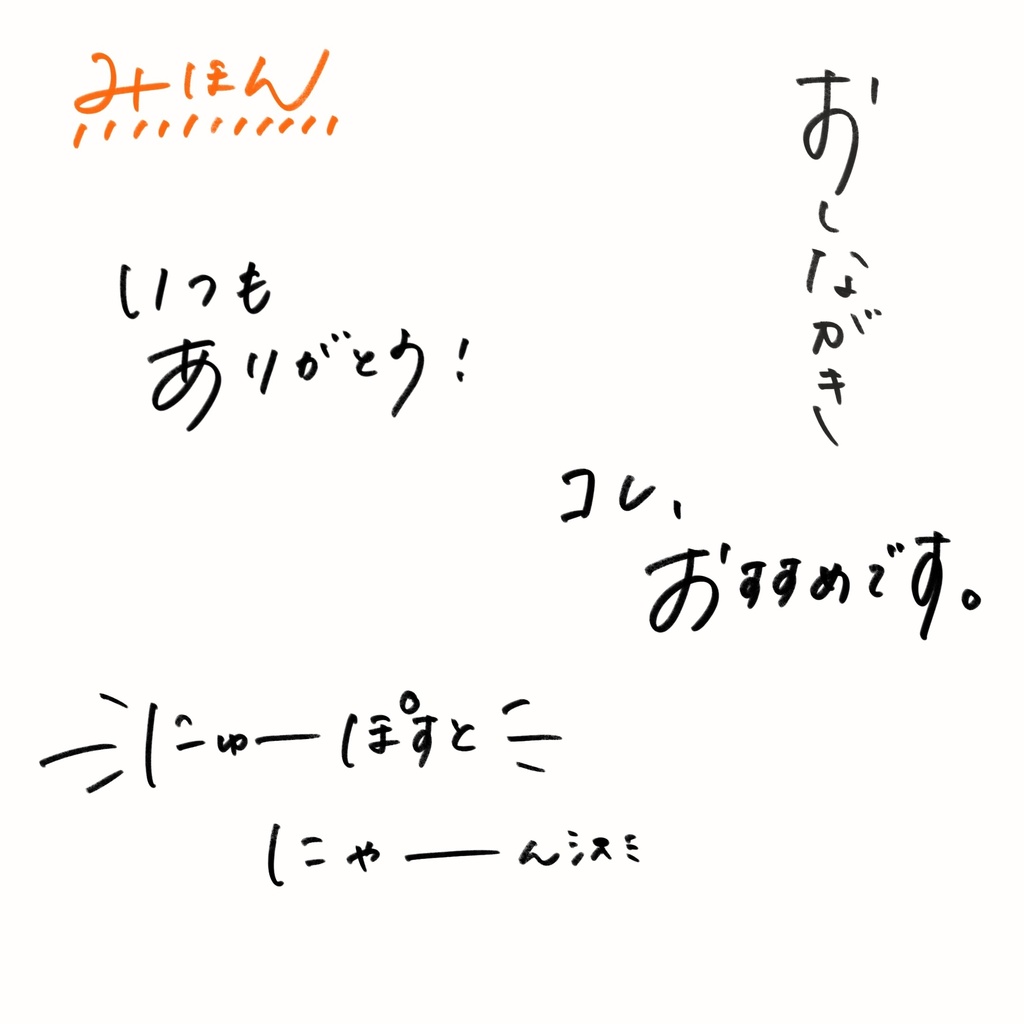 みほん
おしながき
いつも
ありがとう!
コレ、
おすすめです。
にゅーぽすと
にゃーんミスミ